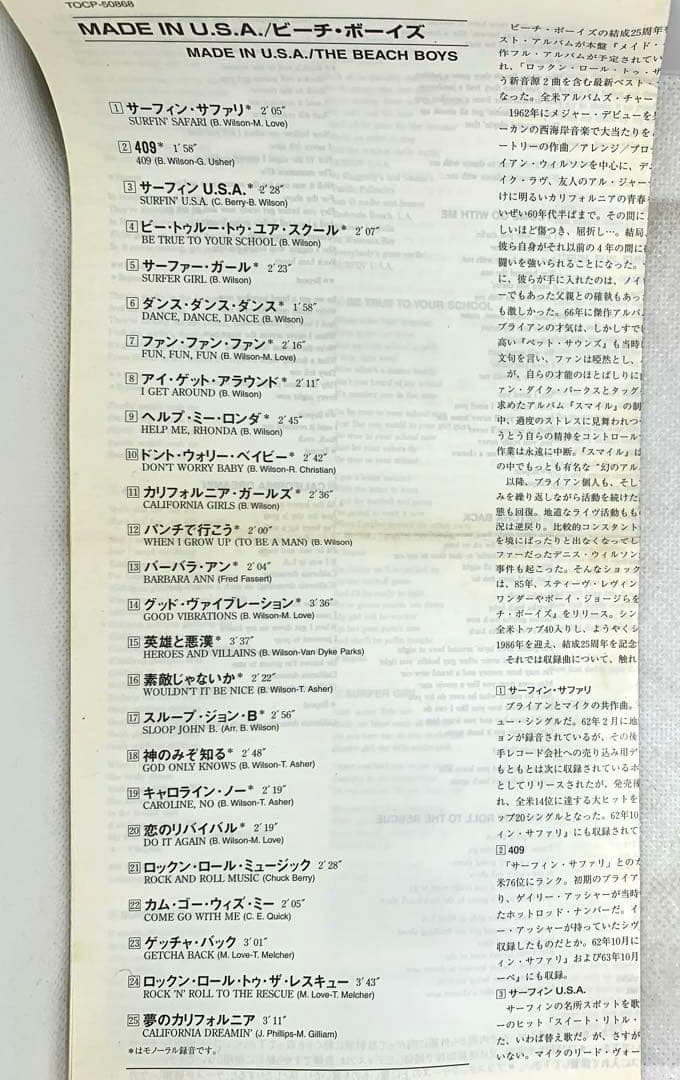 TOCP-50868
MADE IN U.S.A./ビーチ・ボーイズ
MADE IN U.S.A./THE BEACH BOYS
1 サーフィン・サファリ* 2′05″
SURFIN' SAFARI (B. Wilson-M. Love)
2 409* 1′58″
409 (B. Wilson-G. Usher)
3 サーフィン U.S.A.* 2′28″
SURFIN' U.S.A. (C. Berry-B. Wilson)
4 ビー・トゥルー・トゥ・ユア・スクール* 2′07″
BE TRUE TO YOUR SCHOOL (B. Wilson)
5 サーファー・ガール* 2′23″
SURFER GIRL (B. Wilson)
6 ダンス・ダンス・ダンス* 1′58″
DANCE, DANCE, DANCE (B. Wilson)
7 ファン・ファン・ファン* 2′16″
FUN, FUN, FUN (B. Wilson-M. Love)
8 アイ・ゲット・アラウンド* 2′11″
I GET AROUND (B. Wilson)
9 ヘルプ・ミー・ロンダ* 2′45″
HELP ME, RHONDA (B. Wilson)
10 ドント・ウォリー・ベイビー* 2′42″
DON'T WORRY BABY (B. Wilson-R. Christian)
11 カリフォルニア・ガールズ* 2′36″
CALIFORNIA GIRLS (B. Wilson)
12 パンチで行こう* 2′00″
WHEN I GROW UP (TO BE A MAN) (B. Wilson)
13 バーバラ・アン* 2′04″
BARBARA ANN (Fred Fassert)
14 グッド・ヴァイブレーション* 3′36″
GOOD VIBRATIONS (B. Wilson-M. Love)
15 英雄と悪漢* 3′37″
HEROES AND VILLAINS (B. Wilson-Van Dyke Parks)
16 素敵じゃないか* 2′22″
WOULDN'T IT BE NICE (B. Wilson-T. Asher)
17 スループ・ジョン・B* 2′56″
SLOOP JOHN B. (Arr. B. Wilson)
18 神のみぞ知る* 2′48″
GOD ONLY KNOWS (B. Wilson-T. Asher)
19 キャロライン・ノー* 2′19″
CAROLINE, NO (B. Wilson-T. Asher)
20 恋のリバイバル* 2′19″
DO IT AGAIN (B. Wilson-M. Love)
21 ロックン・ロール・ミュージック 2′28″
ROCK AND ROLL MUSIC (Chuck Berry)
22 カム・ゴー・ウィズ・ミー 2′05″
COME GO WITH ME (C. E. Quick)
23 ゲッチャ・バック 3′01″
GETCHA BACK (M. Love-T. Melcher)
24 ロックン・ロール・トゥ・ザ・レスキュー 3′43″
ROCK 'N' ROLL TO THE RESCUE (M. Love-T. Melcher)
25 夢のカリフォルニア 3′11″
CALIFORNIA DREAMIN' (J. Phillips-M. Gilliam)
*はモノーラル録音です。
ビーチ・ボーイズの結成25周年
スト・アルバムが本盤『メイド・
作フル・アルバムが予定されてい
れ、「ロックン・ロール・トゥ・ザ
う新音源2曲を含む最新ベスト・
なった。全米アルバムズ・チャー
1962年にメジャー・デビューを
ーカンの西海岸音楽で大当たりを
ートリーの作曲/アレンジ/プロ
イアン・ウィルソンを中心に、デ
イク・ラヴ、友人のアル・ジャー
けに明るいカリフォルニアの青春
いぜい60年代半ばまで。その間に
しいほど傷つき、屈折し…。結局、
彼ら自身がそれ以前の4年の間に
闘いを強いられることになった。
に、彼らが手に入れたのは、ノイ
ーでもあった父親との確執もあっ
も激しかった。66年に傑作アルバ
ブライアンの才気は、しかしすで
高い『ペット・サウンズ』も当時
文句を言い、ファンは啞然とし、
が、自らの才能のほとばしりに
ァン・ダイク・パークスとタッグ
求めたアルバム『スマイル』の制
中、過度のストレスに見舞われつ
うとう自らの精神をコントロール
作業は永遠に中断。『スマイル』は
の中でもっとも有名な“幻のアル
以降、ブライアン個人も、そし
みを繰り返しながら活動を続けた
態も回復。地道なライヴ活動もも
況は逆戻り。比較的コンスタント
を境にぱったりと出なくなってし
ファーだったデニス・ウィルソン
事件も起こった。そんなショック
は、85年、スティーヴ・レヴィン
ワンダーやボーイ・ジョージらを
チ・ボーイズ』をリリース。シン
全米トップ40入りし、ようやくシ
1986年を迎え、結成25周年を記念
それでは収録曲について、触れ
1 サーフィン・サファリ
ブライアンとマイクの共作曲。
ュー・シングルだ。62年2月に地
ョンが録音されているが、その後
手レコード会社への売り込み用デ
もともとは次に収録されているホ
としてリリースされたが、発売後
れ、全米14位に達する大ヒットを
ップ20シングルとなった。62年10
ィン・サファリ』にも収録されて
2 409
「サーフィン・サファリ」とのカ
米76位にランク。初期のブライア
り、ゲイリー・アッシャーが当時
たホットロッド・ナンバーだ。イ
ー・アッシャーが持っていたシヴ
収録したものだとか。62年10月に
ィン・サファリ』および63年10月
ーペ』にも収録。
3 サーフィン U.S.A.
サーフィンの名所スポットを歌
ーのヒット「スイート・リトル・
た、いわば替え歌だ。が、さすが
いない。マイクのリード・ヴォー